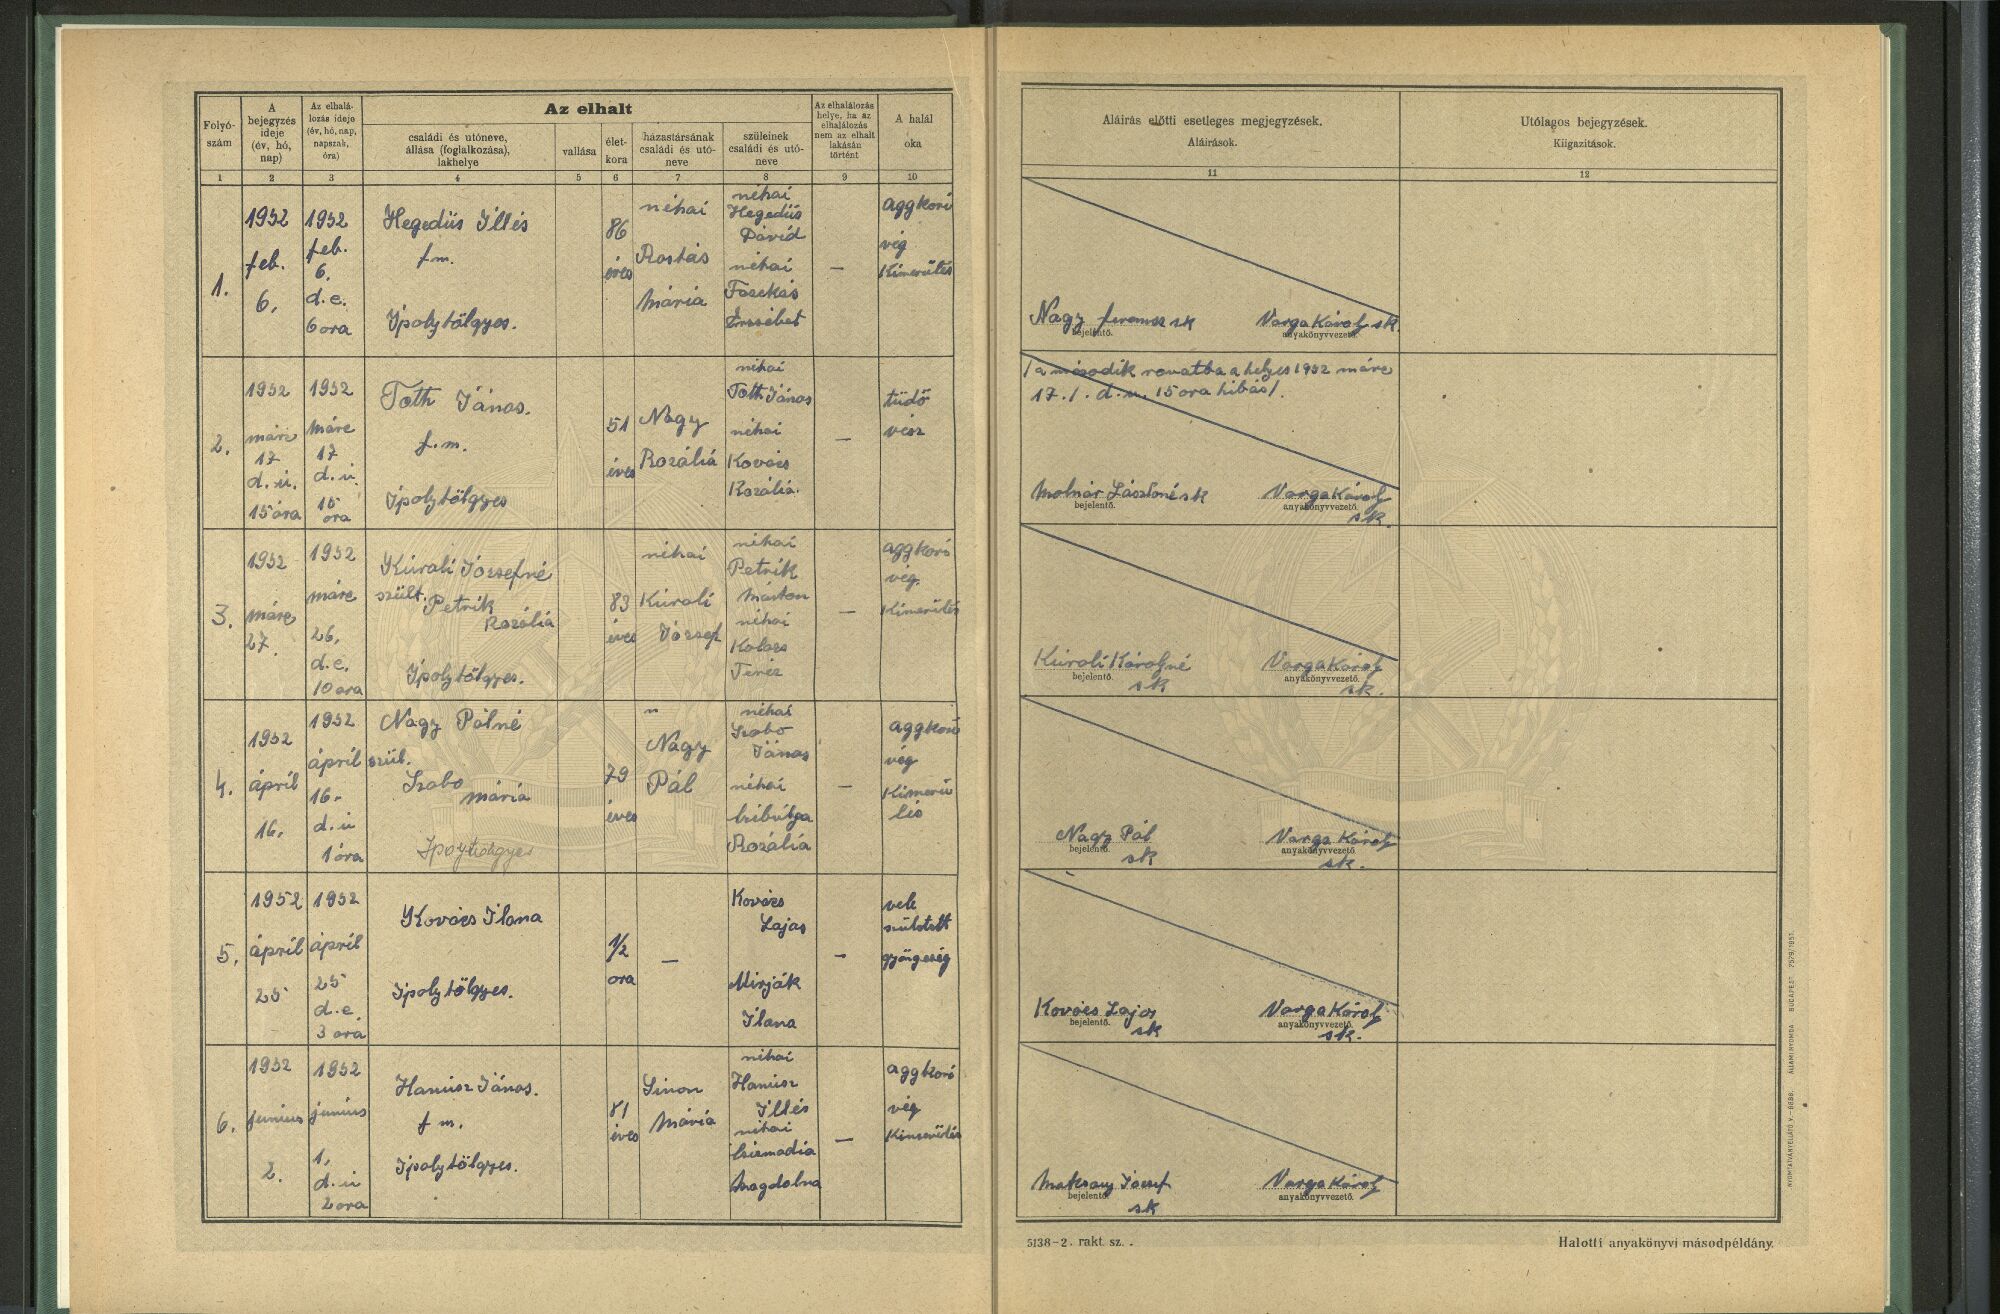 Folyó-
szám
A
bejegyzés
ideje
(év, hó,
nap)
Az elhalá-
lozás ideje
(év, hó, nap,
napszak,
óra)
Az elhalt
családi és utóneve,
állása (foglalkozása),
lakhelye
vallása
élet-
kora
házastársának
családi és utó-
neve
szüleinek
családi és utó-
neve
Az elhalálozás
helye, ha az
elhalálozás
nem az elhalt
lakásán
történt
A halál
oka
1 2 3 4 5 6 7 8 9 10
1.
1952
feb.
6.
1952
feb.
6.
d.e.
6 ora
Hegedüs Illés
f.m.
Ipolytölgyes.
86
éves
néhai
Rostás
Mária
néhai
Hegedüs
Dávid
néhai
Fazekás
Erzsébet
–
aggkori
vég
Kimerülés
2.
1952
márc
17
d.u.
15 óra
1952
márc
17
d.u.
15
ora
Toth János.
f.m.
Ipolytölgyes
51
éves
Nagy
Rozália
néhai
Toth János
néhai
Kovács
Rozália.
–
tüdő
vész
3.
1952
márc
27.
1952
márc
26.
d.e.
10 ora
Kúrali Józsefné
szült.
Petrik
Rozália
Ipolytölgyes.
83
éves
néhai
Kúrali
József
néhai
Petrik
Márton
néhai
Teréz
–
aggkori
vég
Kimerülés
4.
1952
április
16.
1952
április
16.
d.u
1 óra
Nagy Pálné
szül.
Szabo
Mária
Ipolytölgyes
79
éves
"
Nagy
Pál
néhai
Szabo
János
néhai
Rozália
–
aggkori
vég
Kimerü
lés
5.
1952
április
25
1952
április
25
d.e.
3 ora
Kovács Ilona
Ipolytölgyes.
1/2
ora
–
Kovács
Lajos
Mirják
Ilona
–
vele
született
gyöngeség
6.
1952
junius
2.
1952
junius
1,
d.u
2 ora
Hanusz János.
f.m.
Ipolytölgyes.
81
éves
Simon
Mária
néhai
Hanusz
Illés
néhai
Csizmadia
Magdolna
–
aggkori
vég
Kimerülés
Aláírás előtti esetleges megjegyzések.
Aláírások.
Utólagos bejegyzések.
Kiigazítások.
11 12
Nagy Ferencz sk Varga Károly sk.
bejelentő. anyakönyvvezető.
/a második rovatba a helyes 1952 márc
17. /. d.u. 15 ora hibás/.
Molnár Lászloné sk Varga Károly
bejelentő. anyakönyvvezető.
sk.
Kúrali Károlyné Varga Károly
bejelentő. anyakönyvvezető.
sk sk.
Nagy Pál Varga Károly
bejelentő. anyakönyvvezető.
sk sk.
Kovács Lajos Varga Károly
bejelentő. anyakönyvvezető.
sk sk.
Maksany József Varga Károly
bejelentő. anyakönyvvezető.
sk
5138-2. rakt. sz. .
Halotti anyakönyvi másodpéldány.